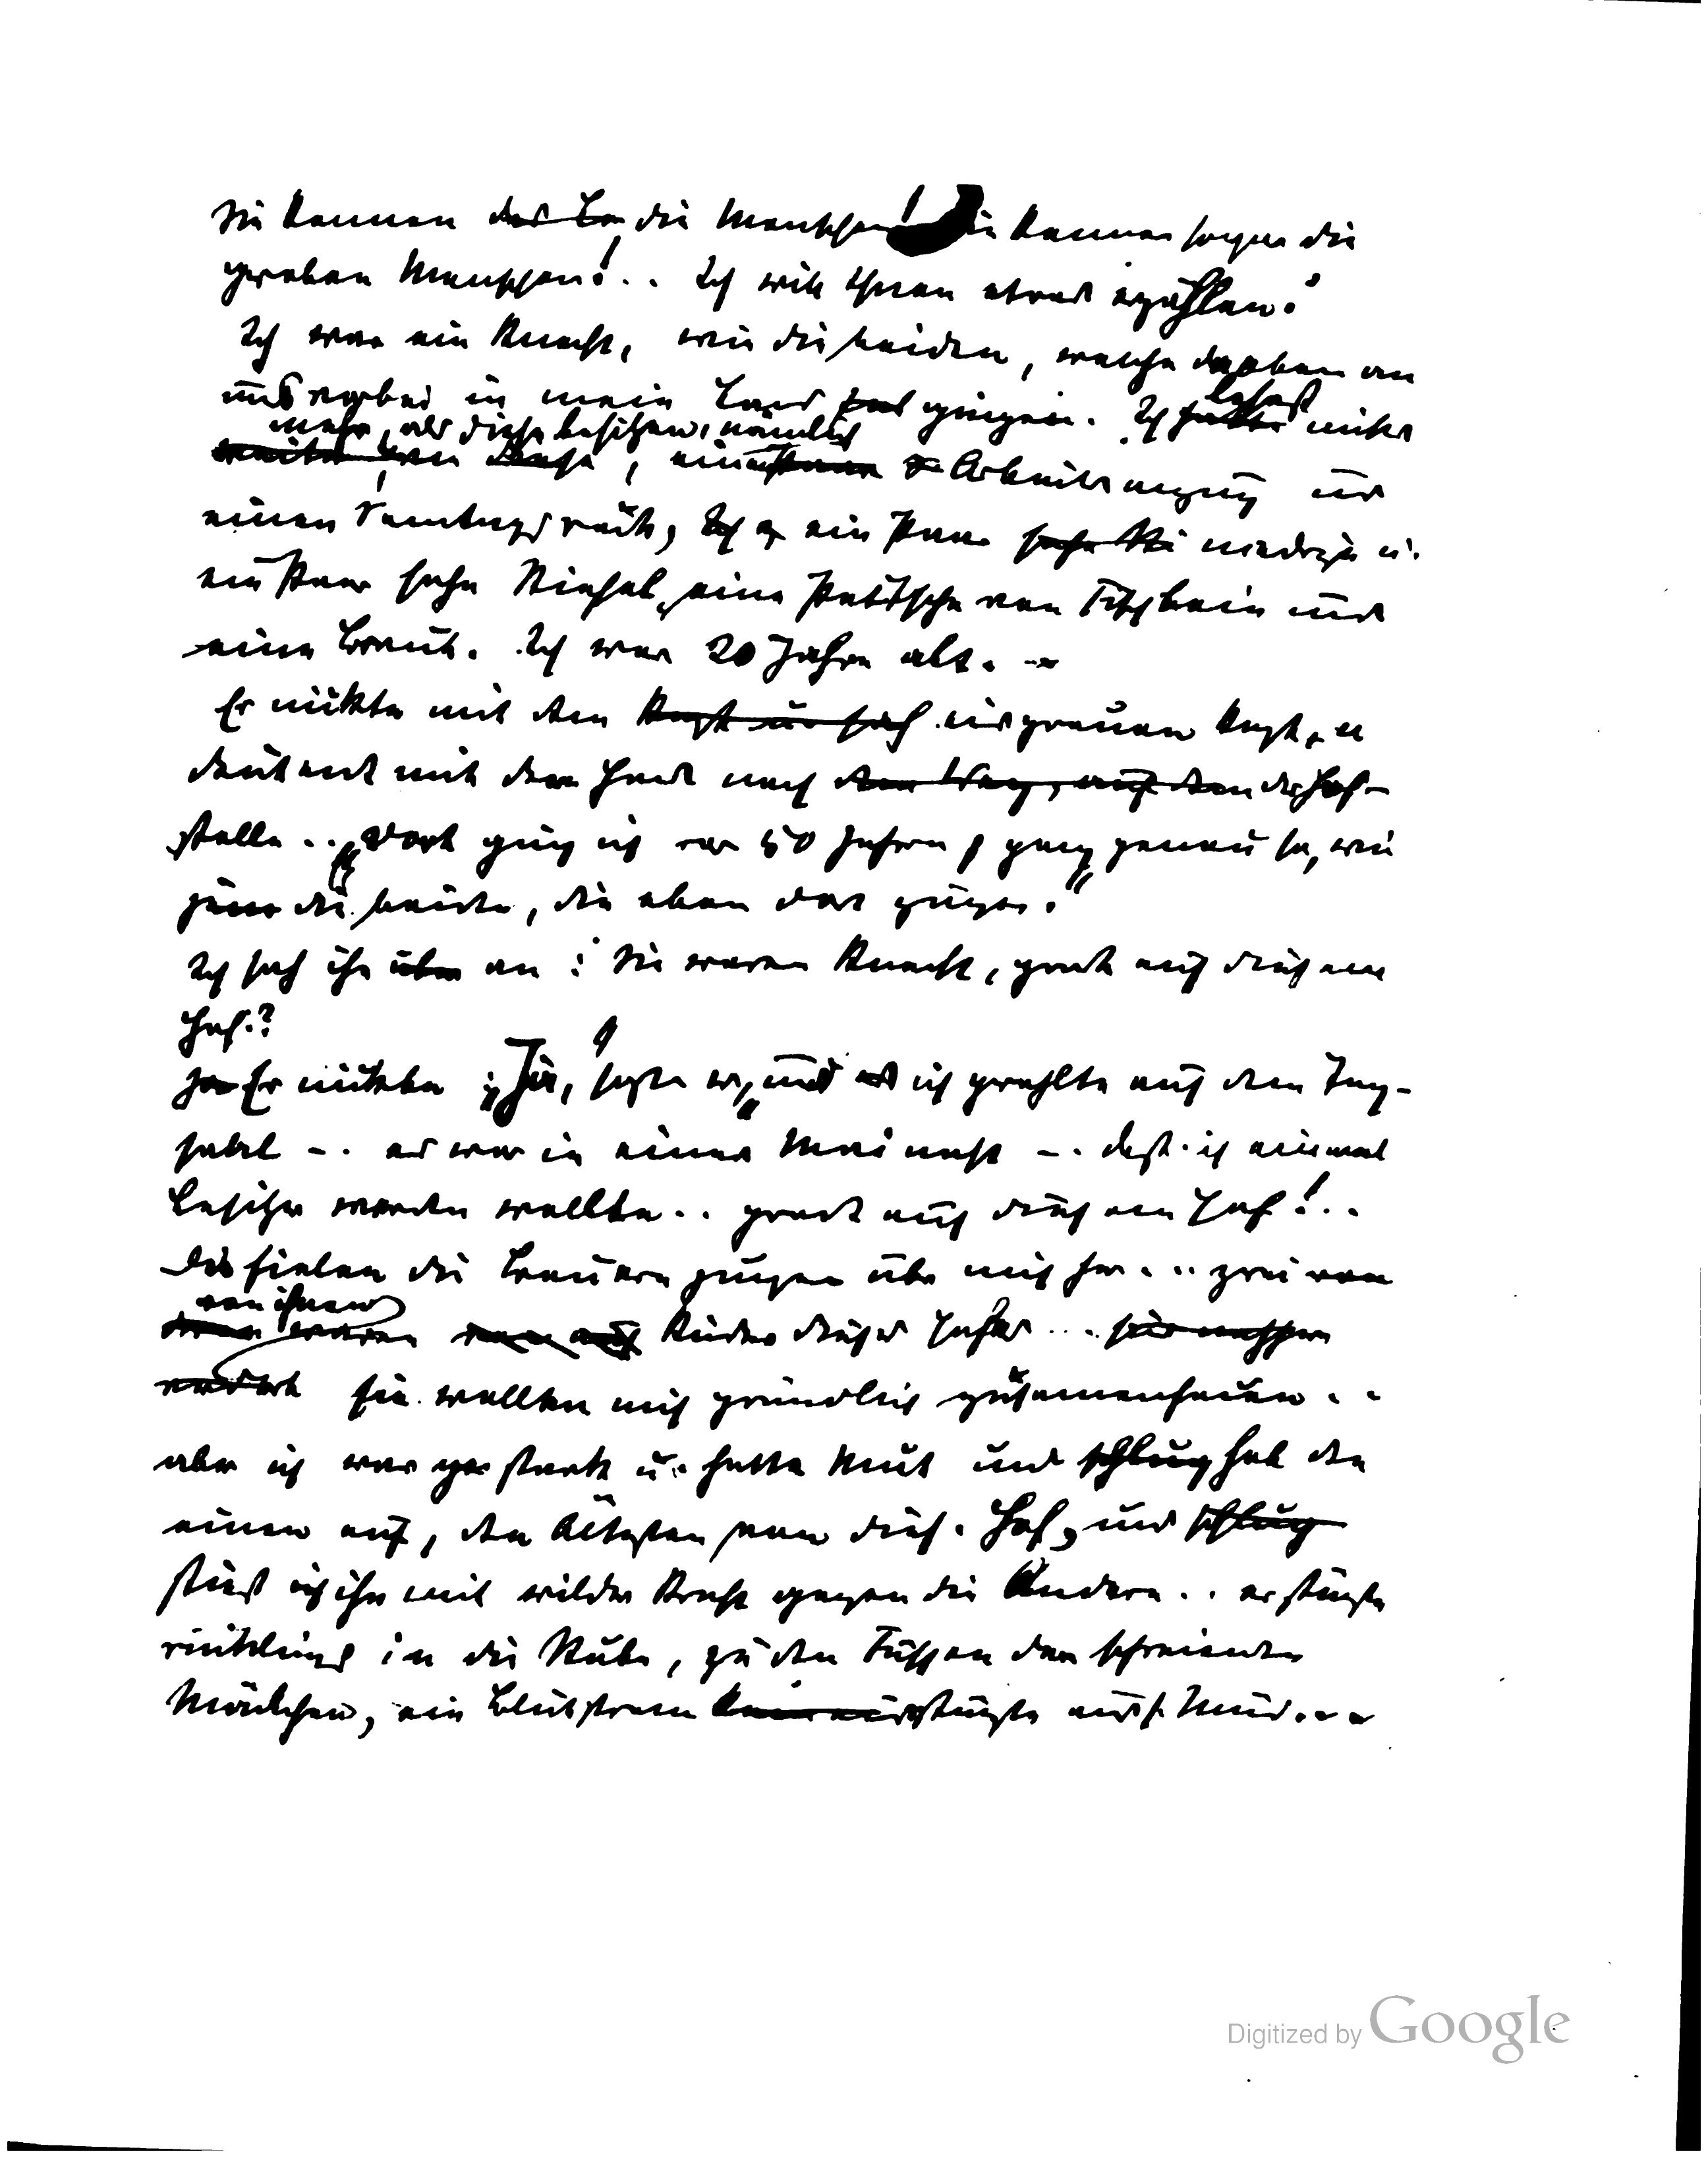 Sie kennen die Menschen! Sie kennen sogar die
groben Menschen!.. Ich will Ihnen etwas erzählen:
Ich war ein Knecht, wie die beiden, welche da eben an
uns vorbei in mein Land gingen. Ich besaß nichts
mehr, als diese besitzen, nämlich
einen Arbeitsanzug und
einen Sonntagsrock, ein Paar niedrige u.
ein Paar hohe Stiefel, eine Peitsche von Fischbein und
eine Braut. Ich war 20 Jahre alt.
Er nickte mit dem eisgrauen Kopf, er
deutend mit der Hand nach der Hof-
stelle.. „Dort ging ich vor 50 Jahren, ganz genau so, wie
die beiden, die eben dort gingen."
Ich sah ihn an: Sie waren Knecht, grade auf diesem
Hof?
Er nickte: „Ja," sagte er, „und ich prahlte auf dem Tanz-
saal - . es war in einer Mainacht - . daß ich einmal
Besitzer werden wollte.. grade auf diesem Hof!..
Da fielen die Bauernjungen über mich her... zwei von
von ihnen
waren Kinder dieses Hofes...
sie wollten mich gründlich zusammenhauen..
aber ich war stark u. hatte Mut und schlug hob den
einen auf, den Ältesten von dies. Hof, und schlug
stieß ich ihn mit wilder Kraft gegen die Andern.. er stürzte
rücklings in die Stube, zu den Füssen der schreienden
Mädchen, ein Blutstrom stürzte aus s. Mund...
Digitized by Google